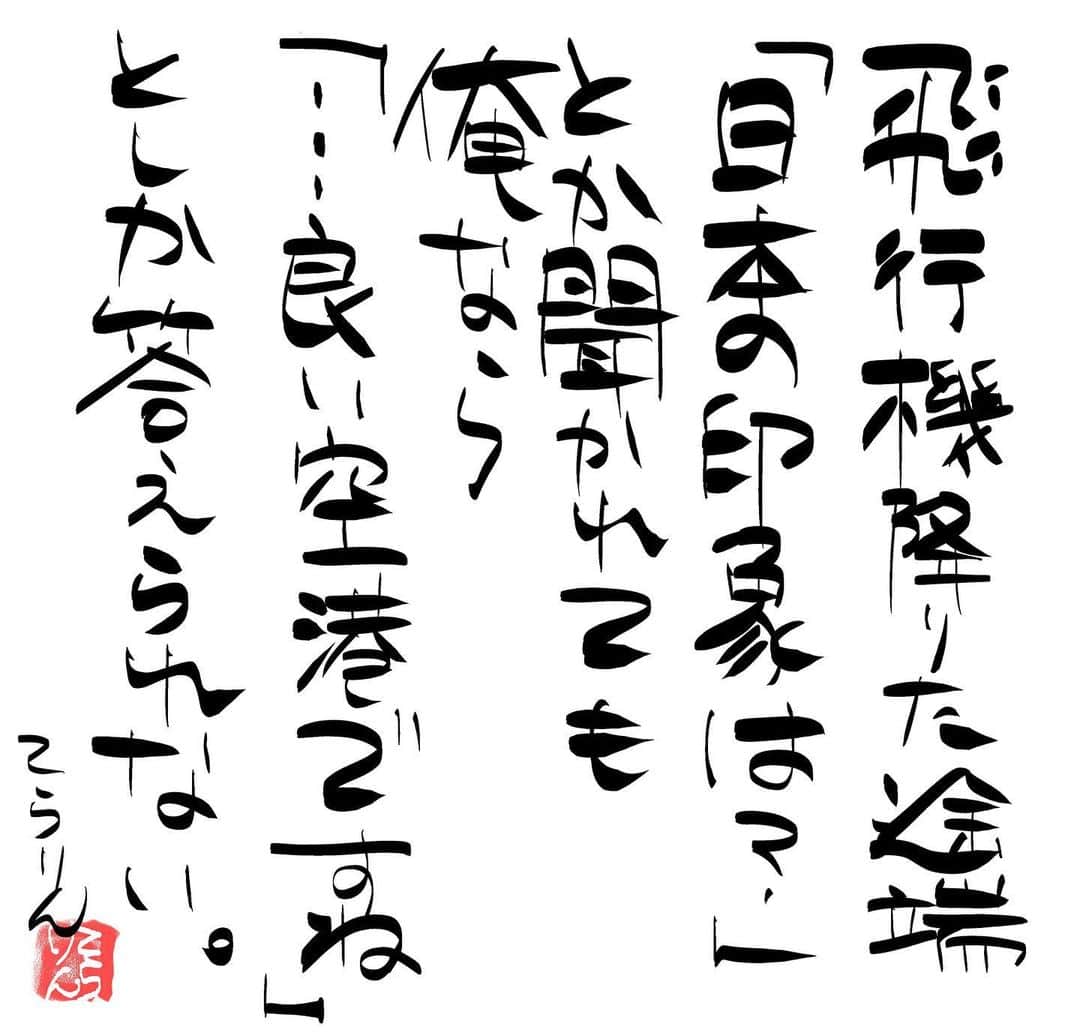 飛行機降りた途端
「日本の印象は？」
とか聞かれても
俺なら
「……良い空港ですね」
としか答えられない。
てらりん